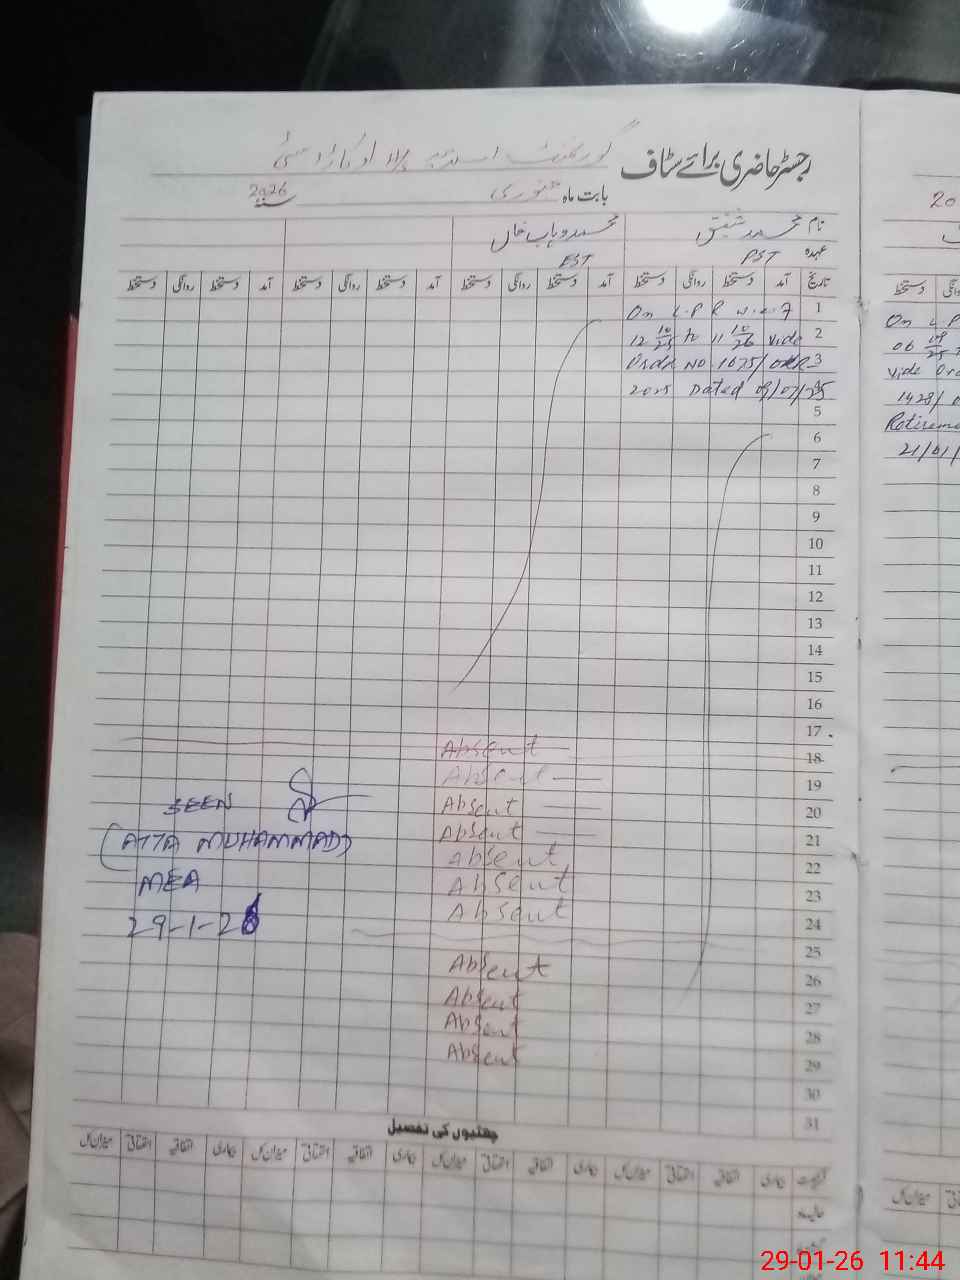 رجسٹر حاضری برائے سٹاف گورنمنٹ
بابت ماہ جنوری 2026
نام محمد شفیق محمد وہاب خان
عہدہ PST EST
تاریخ آمد دستخط روانگی دستخط آمد دستخط روانگی دستخط آمد دستخط روانگی دستخط آمد دستخط روانگی دستخط
1 On L.P.R w.e.f
2 12 10/25 to 11 10/26 vide
3 Order No 1675/
4 2025 Dated 09/07/25
5
6
7
8
9
10
11
12
13
14
15
16
17
18 Absent
19 Absent
20 Absent
21 Absent
22 Absent
23 Absent
24 Absent
25
26 Absent
27 Absent
28 Absent
29 Absent
30
31
SEEN
(ATTA MUHAMMAD)
MEA
29-1-26
چھٹیوں کی تفصیل
بیماری اتفاقیہ استحقاقی میزان کل بیماری اتفاقیہ استحقاقی میزان کل بیماری اتفاقیہ استحقاقی میزان کل بیماری اتفاقیہ استحقاقی میزان کل
20
دستخط
On L P
06 09/25
vide Ord
1428/
Retireme
21/01/
میزان کل
29-01-26 11:44